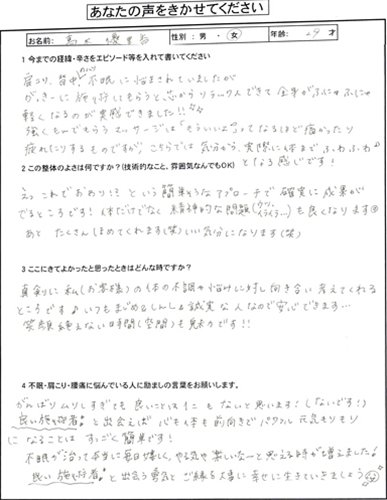 あなたの声をきかせてください
お名前: 性別:男・女 年齢: 29才
1 今までの経緯・辛さをエピソード等を入れて書いてください
肩こり、背中、不眠に悩まされていましたが
施術してもらうと、心からリラックスできて全身がふにゃふにゃ
軽くなるのが実感できました!!
強くもんでもらうマッサージは「もういいよ」ってなるほど痛かったり
疲れたりするものですが、こちらでは気分から、実際に体までふわふわ
となる感じです!
2 この整体のよさは何ですか?(技術的なこと、雰囲気なんでもOK)
えっこれでおわり!?という簡単そうなアプローチで確実に成果が
でるところです!体だけでなく精神的な問題(ウツ、イライラ…)も良くなります
あとたくさんほめてくれます(笑)いい気分になります(笑)
3 ここにきてよかったと思ったときはどんな時ですか?
真剣に私(お客様)の体の不調や悩みに対し向き合い考えてくれる
ところです♪いつもまじめ&しんし&誠実な人なので安心できます…
笑顔絶えない時間(空間)も魅力です!!
4 不眠・肩こり・腰痛に悩んでいる人に励ましの言葉をお願いします。
がんばりムリしすぎても良いことは1こもないと思います!(しないです!)
良い施術者♪と出会えば心も体も前向きでパワフル元気もりもり
になることはすごく簡単です!
不眠が治って本当に毎日が嬉しく、やる気や楽しいな〜と思える時が増えました!
良い施術者♪と出会う勇気とご縁を大事に幸せに生きていきましょう